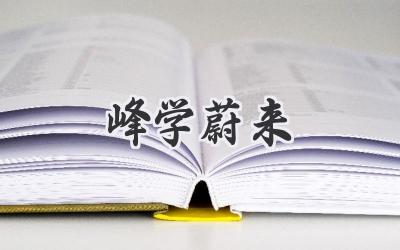 峰学蔚来